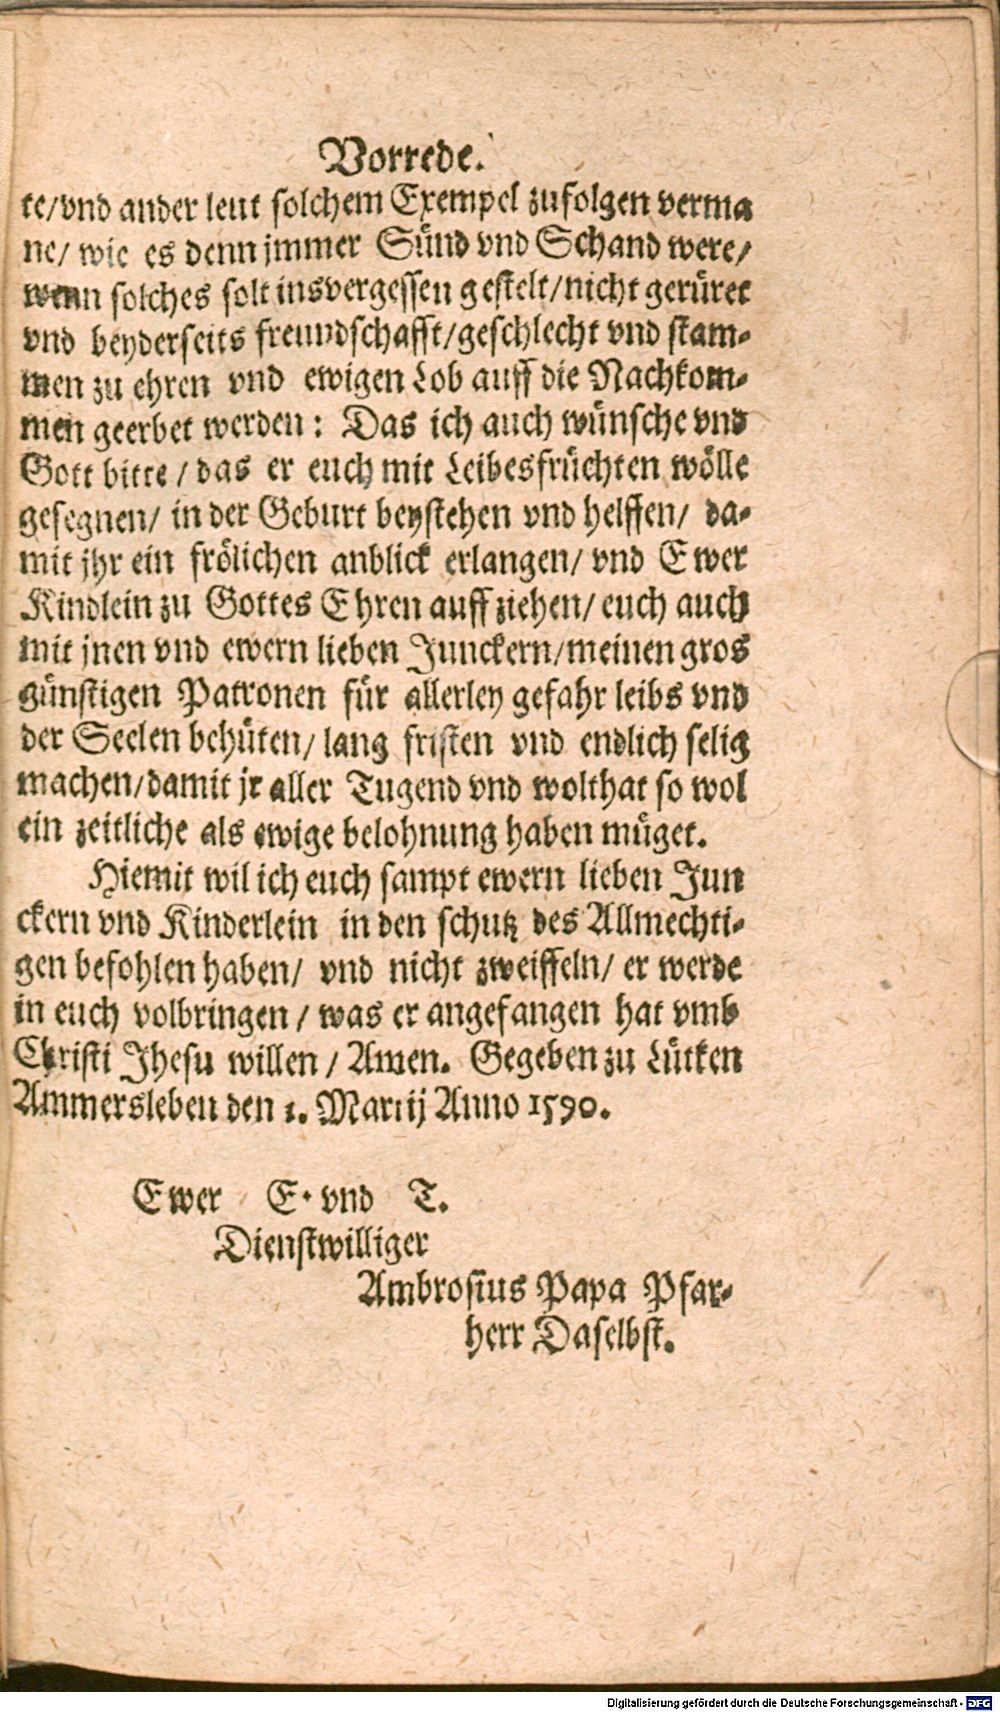 Vorrede.
te/vnd ander leut solchem Exempel zufolgen verma
ne/ wie es denn jmmer Sünd vnd Schand were/
wenn solches solt insvergessen gestelt/nicht gerüret
vnd beyderseits freundschafft/geschlecht vnd stam-
men zu ehren vnd ewigen Lob auff die Nachkom-
men geerbet werden: Das ich auch wünsche vnd
Gott bitte/das er euch mit Leibesfrüchten wölle
gesegnen/ in der Geburt beystehen vnd helffen/ da-
mit jhr ein frölichen anblick erlangen/ vnd Ewer
Kindlein zu Gottes Ehren auff ziehen/ euch auch
mit jnen vnd ewern lieben Junckern/meinen gros
günstigen Patronen für allerley gefahr leibs vnd
der Seelen behüten/ lang fristen vnd endlich selig
machen/damit jr aller Tugend vnd wolthat so wol
ein zeitliche als ewige belohnung haben müget.
Hiemit wil ich euch sampt ewern lieben Jun
ckern vnd Kinderlein in den schutz des Allmechti-
gen befohlen haben/ vnd nicht zweiffeln/ er werde
in euch volbringen / was er angefangen hat vmb
Christi Jhesu willen / Amen. Gegeben zu Lütken
Ammersleben den 1. Martij Anno 1590.
Ewer E. vnd T.
Dienstwilliger
Ambrosius Papa Pfar-
herr Daselbst.
Digitalisierung gefördert durch die Deutsche Forschungsgemeinschaft - DFG